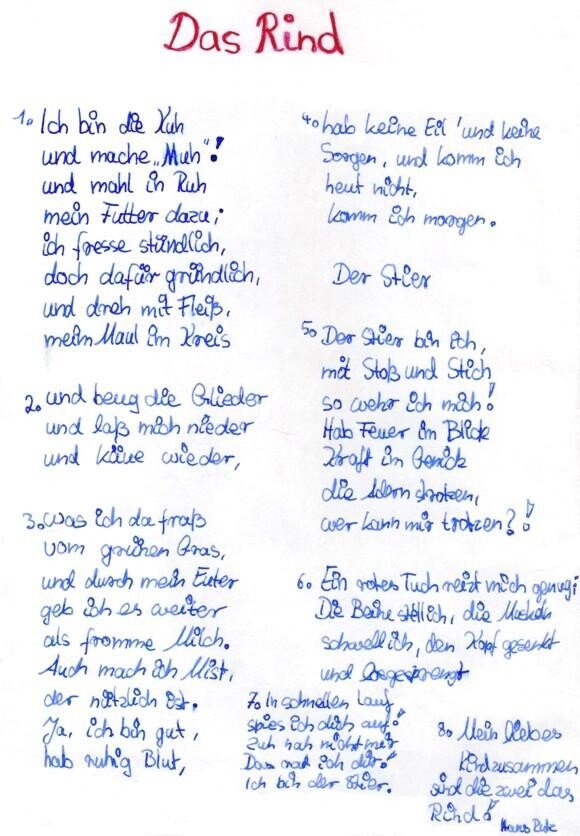 Das Rind
1. Ich bin die Kuh
und mache „Muh"!
und mahl in Ruh
mein Futter dazu;
ich fresse stündlich,
doch dafür gründlich,
und dreh mit Fleiß,
mein Maul im Kreis
2. und beug die Glieder
und laß mich nieder
und käue wieder,
3. was ich da fraß
vom grünen Gras,
und durch mein Euter
geb ich es weiter
als fromme Milch.
Auch mach ich Mist,
der nützlich ist.
Ja, ich bin gut,
hab ruhig Blut,
4. hab keine Eil' und keine
Sorgen, und komm ich
heut nicht,
komm ich morgen.
Der Stier
5. Der Stier bin ich,
mit Stoß und Stich
so wehr ich mich!
Hab Feuer im Blick
Kraft im Genick
die Adern strotzen,
wer kann mir trotzen?!
6. Ein rotes Tuch reizt mich genug;
Die Beine stell ich, die Muskeln
schwell ich, den Kopf gesenkt
und losgesprengt
7. In schnellen Lauf
spies ich dich auf!
nah nicht mir
Das rat ich dir!
Ich bin der Stier.
8. Mein liebes
Kind zusammen
sind die zwei das
Rind!
Hans